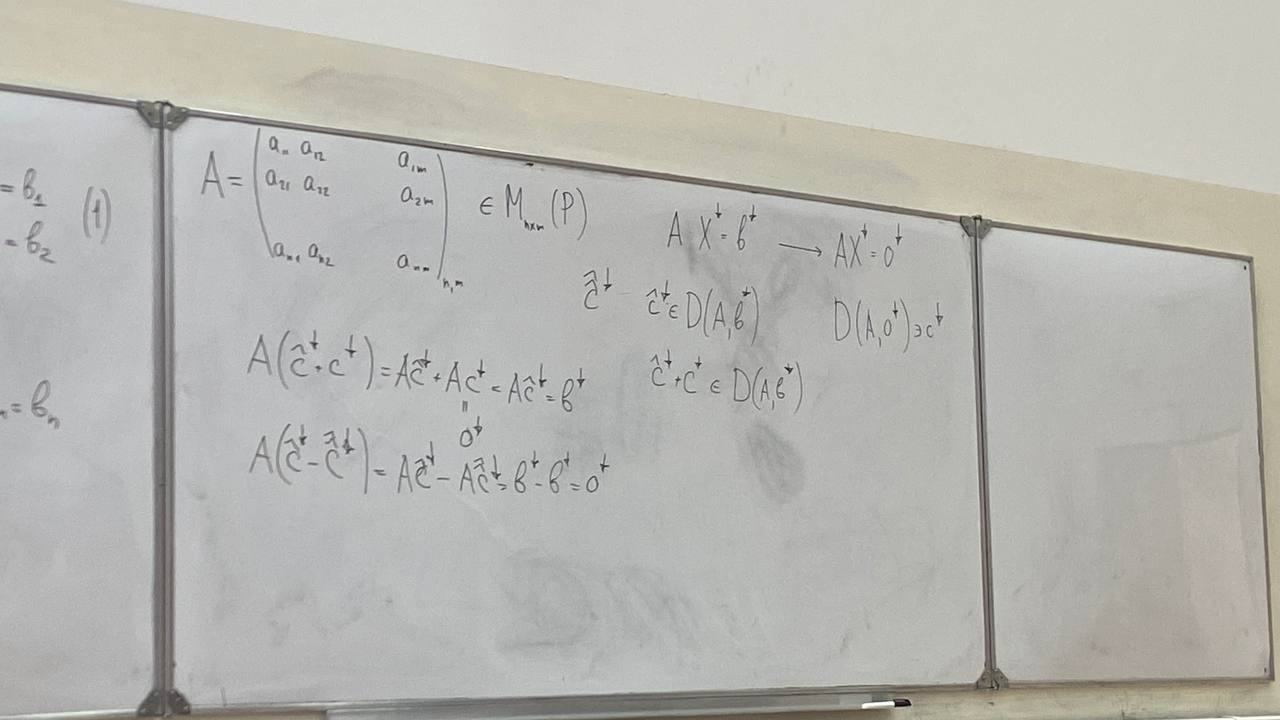 = b₁ (1)
= b₂
= bₙ
A = ( a₁₁ a₁₂ a₁ₘ
a₂₁ a₂₂ a₂ₘ
aₙ₁ aₙ₂ aₙₘ )ₙ,ₘ ∈ Mₙₓₘ(P)
A X↓ = b↓ → AX↓ = 0↓
ĉ̂↓ – ĉ↓ ∈ D(A, b↓) D(A, 0↓) ∋ c↓
A(ĉ↓ + c↓) = Aĉ↓ + Ac↓ = Aĉ↓ = b↓ ĉ↓ + c↓ ∈ D(A, b↓)
॥
0↓
A(ĉ↓ – ĉ̂↓) = Aĉ↓ – Aĉ̂↓ = b↓ – b↓ = 0↓